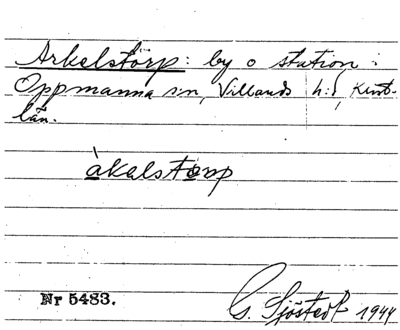 Arkelstorp: by o station i
Oppmanna s:n, Villands h:d, Krist.
län.
àkalstɔrp
Nr 5483.
G. Sjöstedt 1944